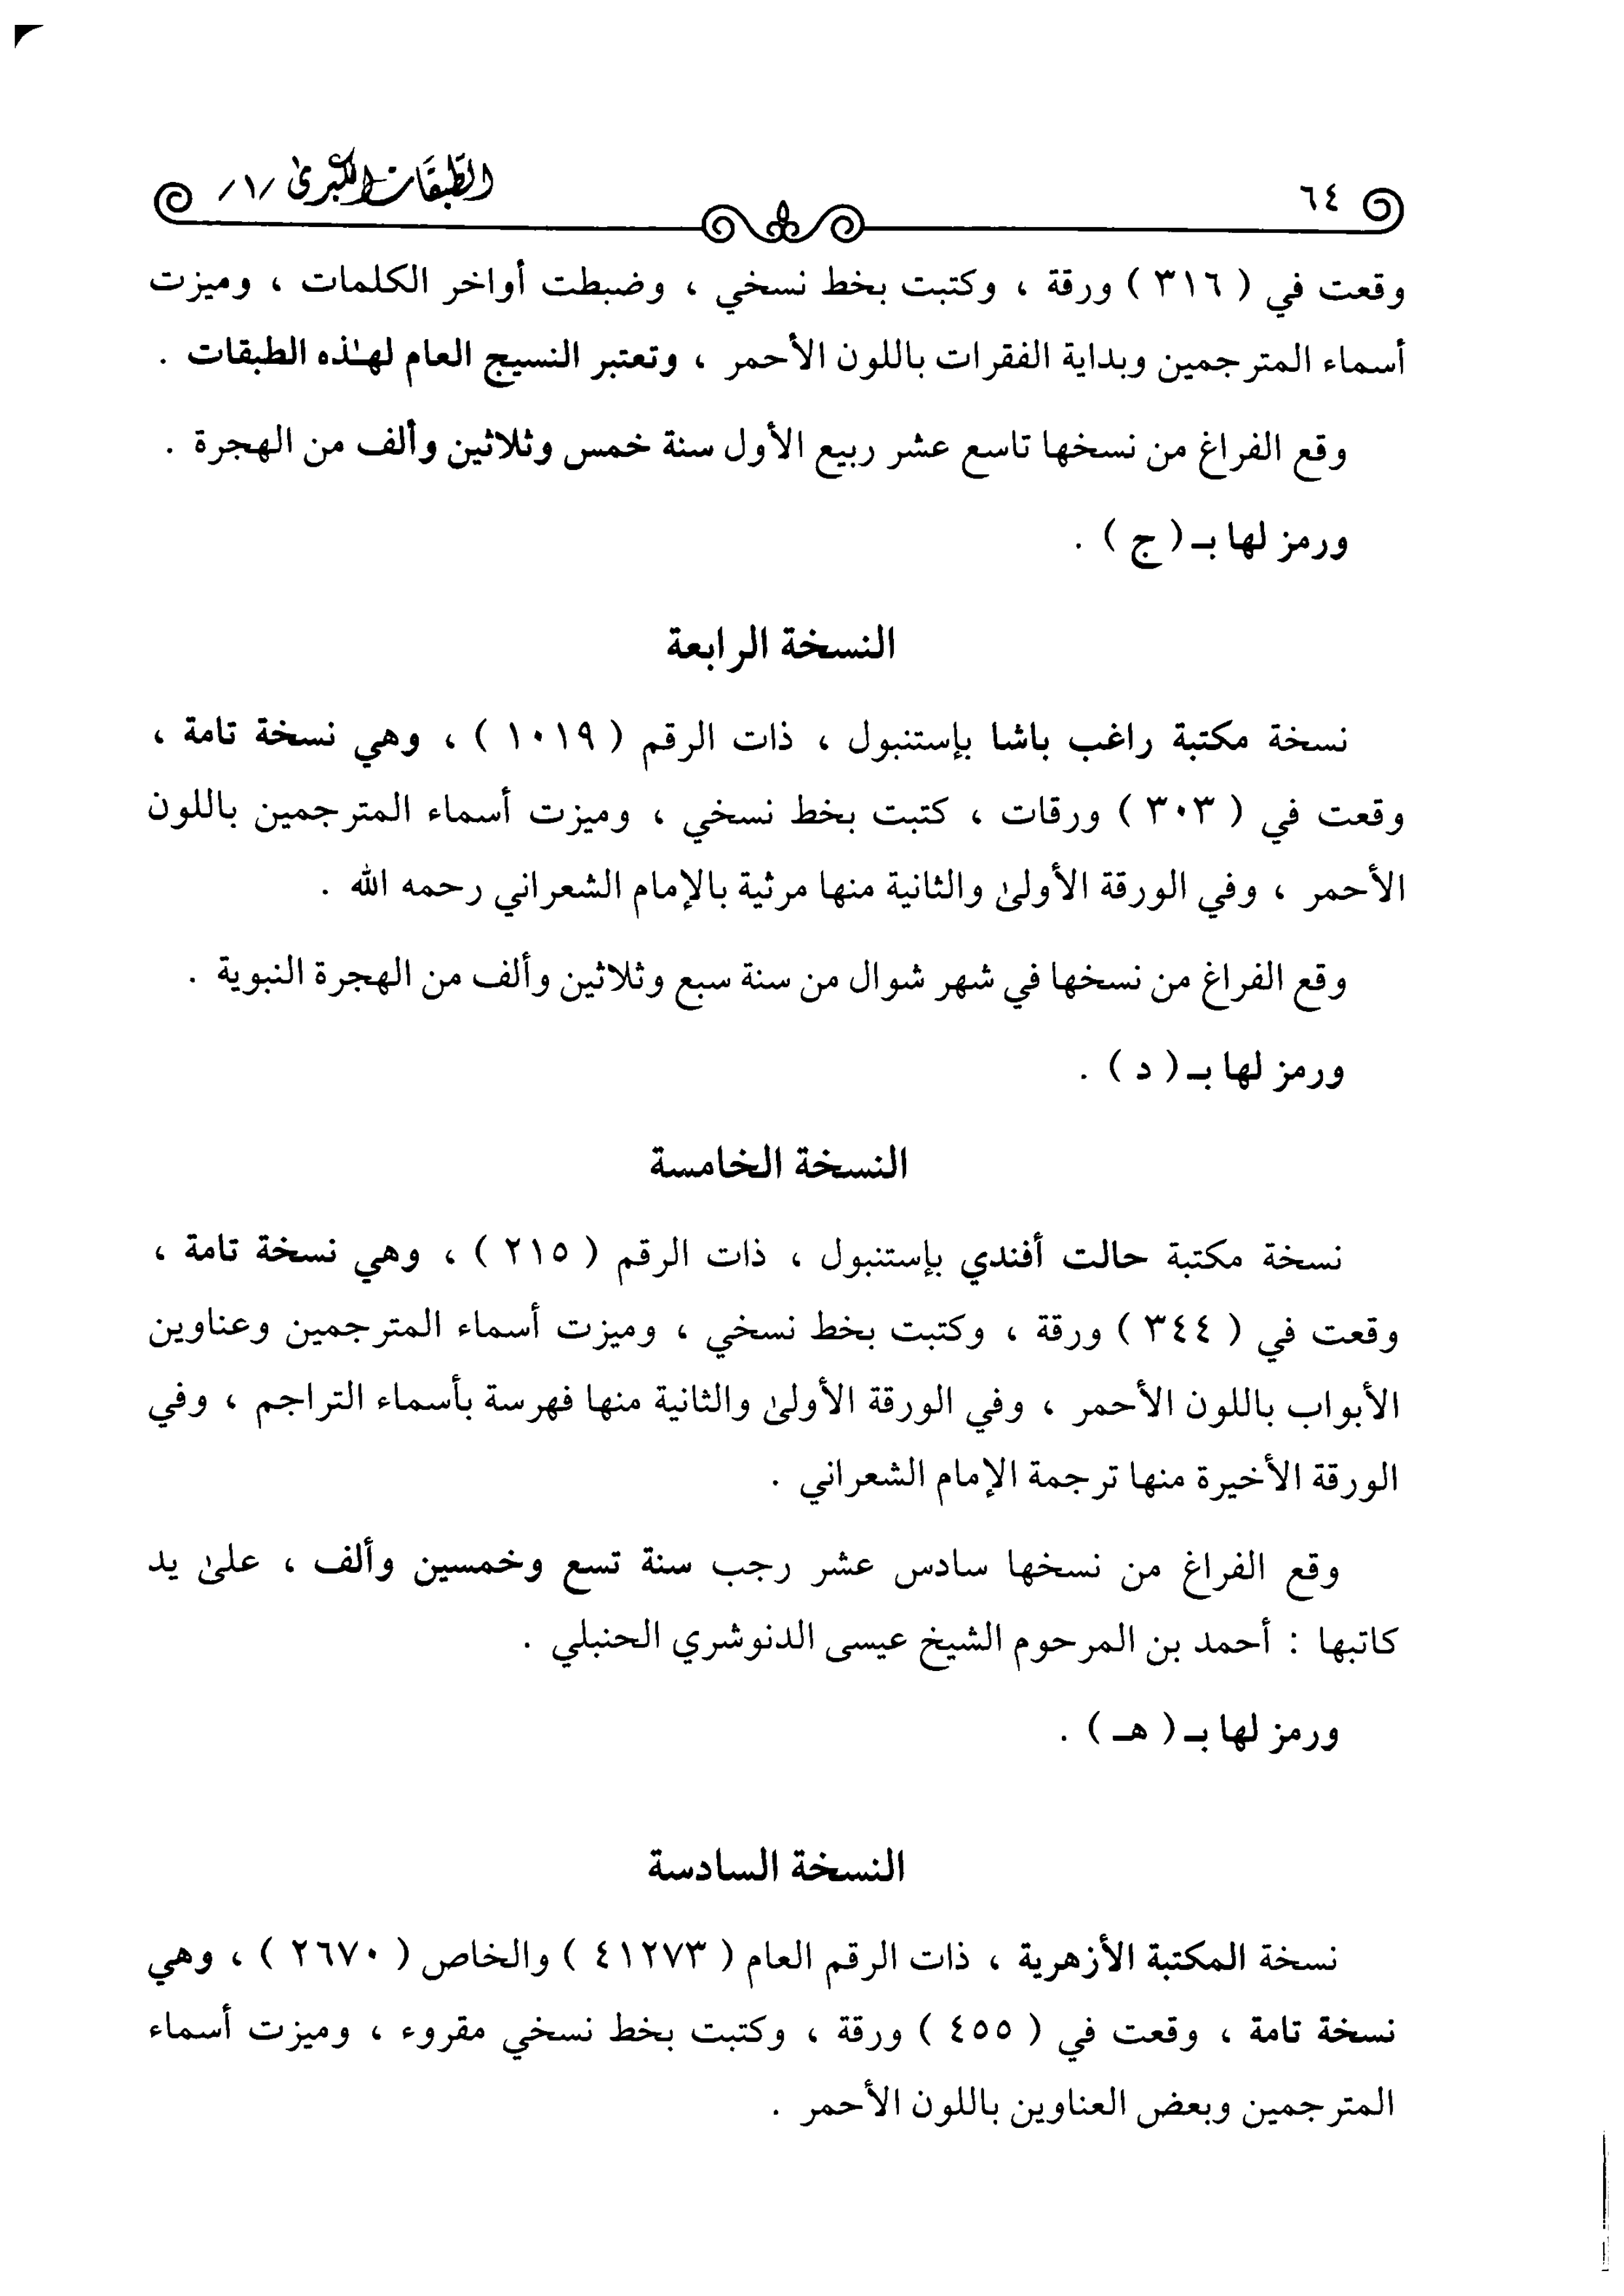 ٦٤
الطبقات الكبرى /١/
وقعت في ( ٣١٦ ) ورقة ، وكتبت بخط نسخي ، وضبطت أواخر الكلمات ، وميزت
أسماء المترجمين وبداية الفقرات باللون الأحمر ، وتعتبر النسيج العام لهـٰذه الطبقات .
وقع الفراغ من نسخها تاسع عشر ربيع الأول سنة خمس وثلاثين وألف من الهجرة .
ورمز لها بـ ( ج ) .
النسخة الرابعة
نسخة مكتبة راغب باشا بإستنبول ، ذات الرقم ( ١٠١٩ ) ، وهي نسخة تامة ،
وقعت في ( ٣٠٣ ) ورقات ، كتبت بخط نسخي ، وميزت أسماء المترجمين باللون
الأحمر ، وفي الورقة الأولىٰ والثانية منها مرثية بالإمام الشعراني رحمه الله .
وقع الفراغ من نسخها في شهر شوال من سنة سبع وثلاثين وألف من الهجرة النبوية .
ورمز لها بـ ( د ) .
النسخة الخامسة
نسخة مكتبة حالت أفندي بإستنبول ، ذات الرقم ( ٢١٥ ) ، وهي نسخة تامة ،
وقعت في ( ٣٤٤ ) ورقة ، وكتبت بخط نسخي ، وميزت أسماء المترجمين وعناوين
الأبواب باللون الأحمر ، وفي الورقة الأولىٰ والثانية منها فهرسة بأسماء التراجم ، وفي
الورقة الأخيرة منها ترجمة الإمام الشعراني .
وقع الفراغ من نسخها سادس عشر رجب سنة تسع وخمسين وألف ، علىٰ يد
كاتبها : أحمد بن المرحوم الشيخ عيسى الدنوشري الحنبلي .
ورمز لها بـ ( هـ ) .
النسخة السادسة
نسخة المكتبة الأزهرية ، ذات الرقم العام ( ٤١٢٧٣ ) والخاص ( ٢٦٧٠ ) ، وهي
نسخة تامة ، وقعت في ( ٤٥٥ ) ورقة ، وكتبت بخط نسخي مقروء ، وميزت أسماء
المترجمين وبعض العناوين باللون الأحمر .